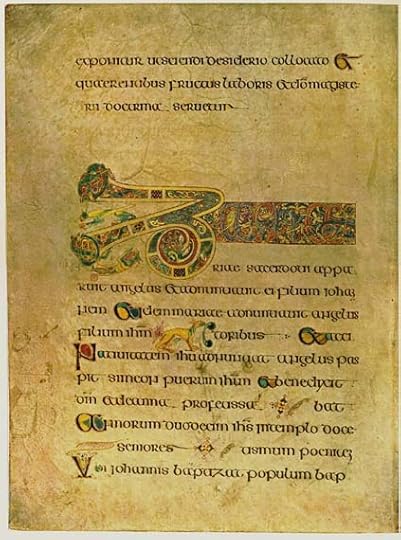 exponatur ut sciendi desiderio collocato Et
quaerentibus fructus laboris Et do magiste
rii doctrina servetur
Z
riae sacerdoti appa
ruit angelus et adnuntiavit ei filium iohan
nem Eidem mariae adnuntiavit angelus
filium ihm toribus Et acci
Nativitatem ihu adnuntiat angelus pas
pit simeon puerum ihm Et benedixit
dm Et de anna profetissa bat
Annorum duodecim ihs in templo doce
seniores tismum
Ubi iohannis baptizat populum bap